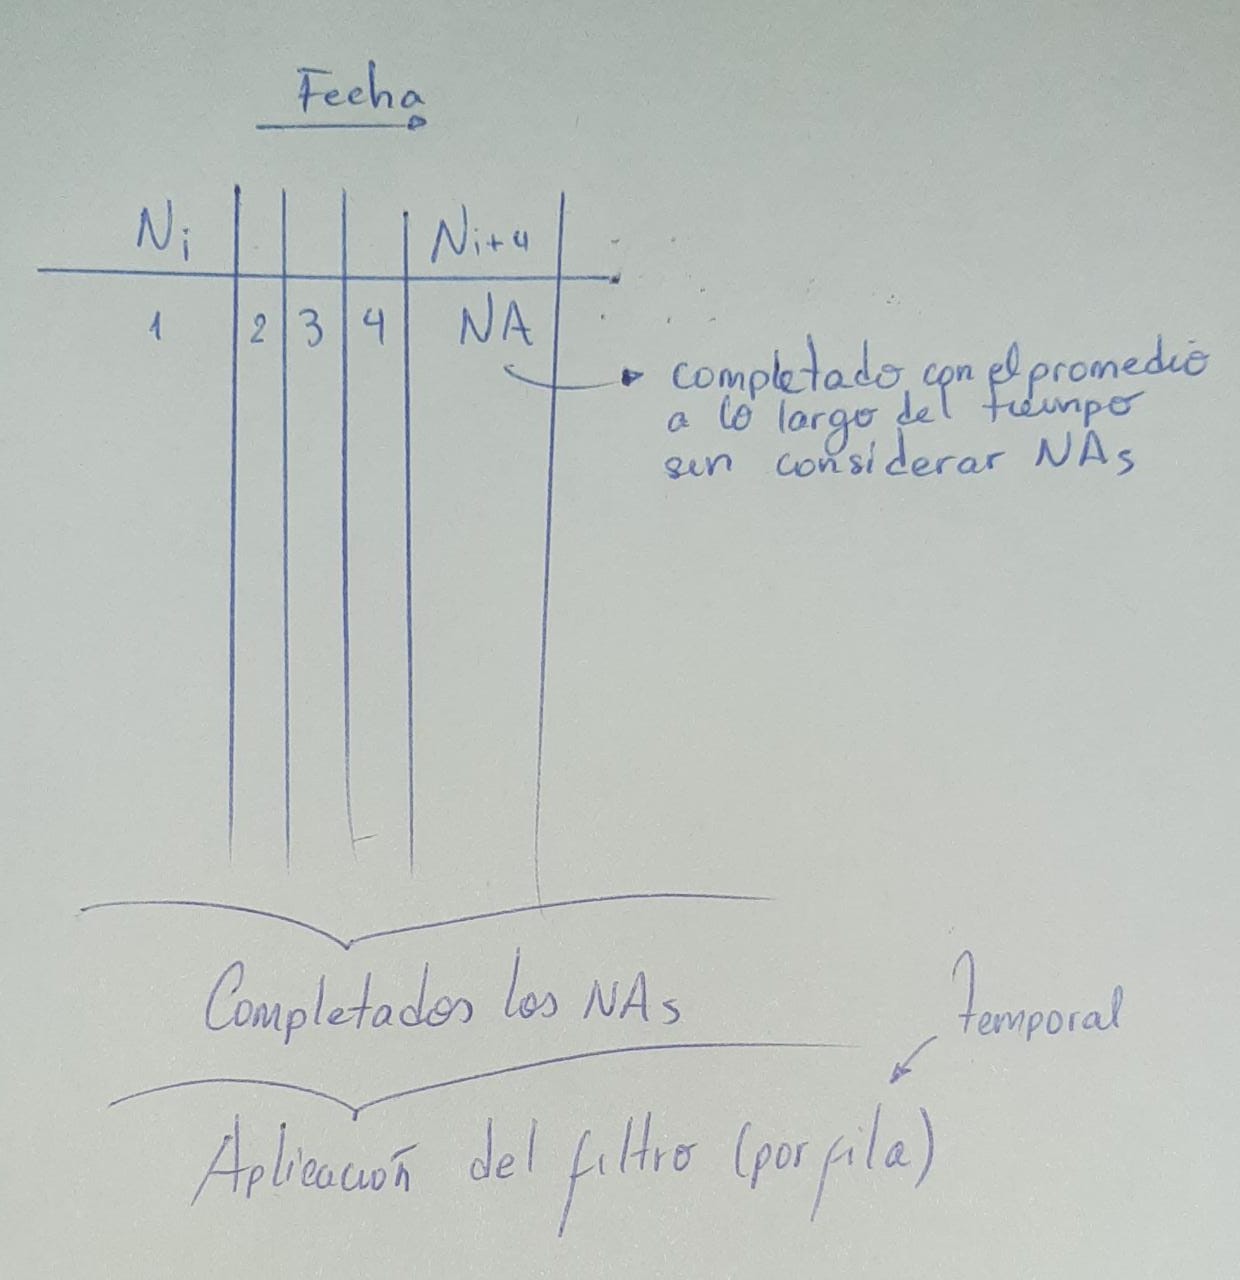 Fecha
Ni Ni+4
1 2 3 4 NA
completado con el promedio
a lo largo del tiempo
sin considerar NAs
Completados los NAs
temporal
Aplicación del filtro (por fila)